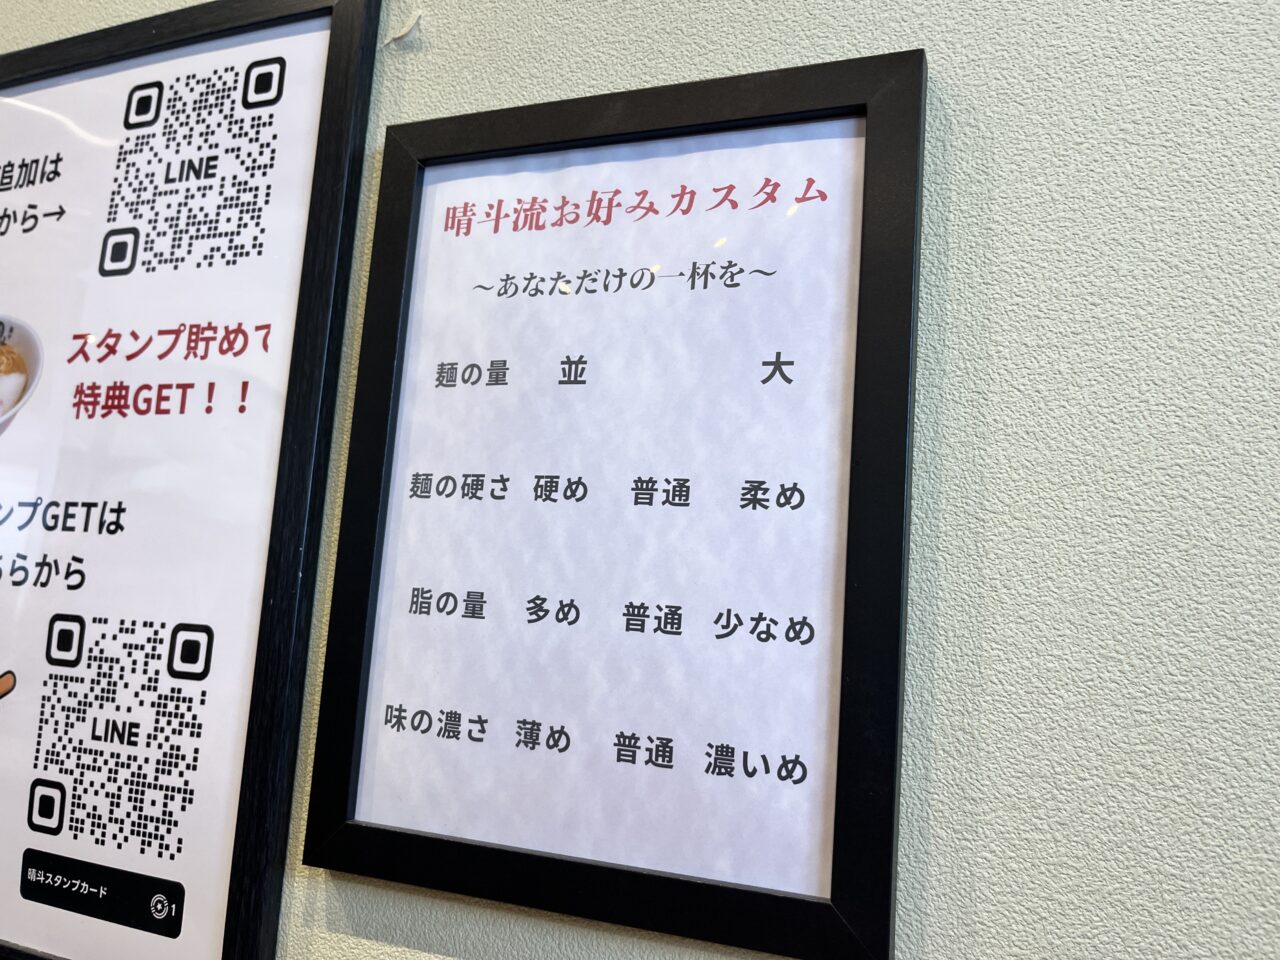 追加は
から→
LINE
スタンプ貯めて
特典GET！！
ンプGETは
ちらから
LINE
晴斗スタンプカード
1
晴斗流お好みカスタム
～あなただけの一杯を～
麺の量 並 大
麺の硬さ 硬め 普通 柔め
脂の量 多め 普通 少なめ
味の濃さ 薄め 普通 濃いめ